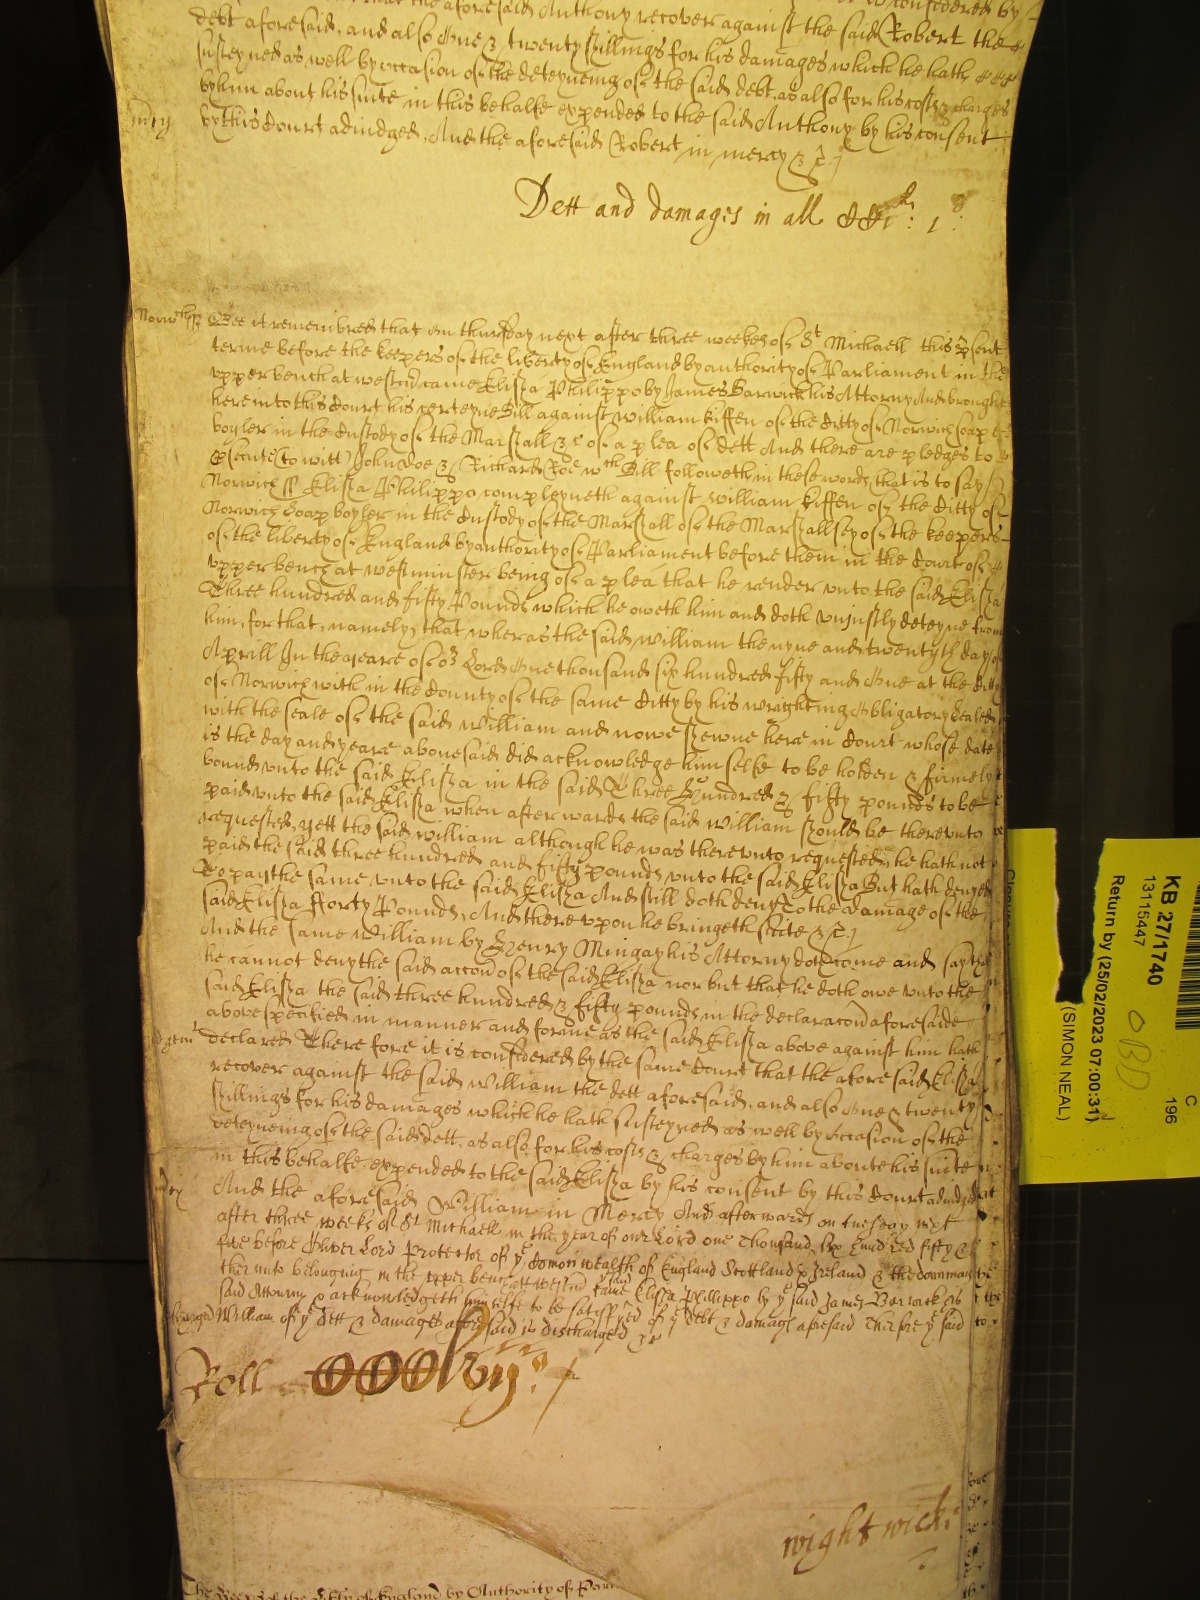 that the aforesaid Anthony recover against the said Robert the
debt aforesaid, and also One & twenty shillings for his damages which he hath
susteyned as well by occasion of the deteyneing of the said debt, as also for his costs & charges
by him about his suite in this behalfe expended to the said Anthony by his consent
by this Court adiudged, And the aforesaid Robert in mercy &c
Dett and damages in all
Norwch ss Bee it remembred that on thursday next after three weekes of St Michaell this psent
terme before the keepers of the liberty of England by authority of Parliament in the
vpper bench at westm came Elisha Philippo by James Barwick his Attorny And brought
here into this Court his certeyne Bill against william kiffen of the Citty of Norwich soape
boyler in the Custody of the Marshall &c of a plea of dett And there are pledges to
psecute (to witt) John Doe & Richard Roe wch Bill followeth in these words, that is to say
Norwich ss Elisha Philippo compleyneth against william kiffen of the Citty of
Norwich Soap boyler in the Custody of the Marshall of the Marshallsey of the keepers
of the liberty of England by authority of Parliament before them in the Court of
vpper bench at westminster being of a plea that he render vnto the said Elisha
Three hundred and fifty Pounds which he oweth him and doth vniustly deteyne from
him, for that, namely, that wheras the said william the nyne and twentyth day of
Aprill In the yeare of or Lord One thousand six hundred fifty and One at the Citty
of Norwich with in the County of the same Citty by his wrighting Obligatory Sealed
with the seale of the said william and nowe shewne here in Court whose date
is the day and yeare abovesaid did acknowledge him selfe to be holden & firmely
bound vnto the said Elisha in the said Three Hundred & fifty pounds to be
paid vnto the said Elisha when after wards the said william should be therevnto
requested, yett the said william although he was therevnto requested, he hath not
paid the said three hundred and fifty pounds vnto the said Elisha But hath denyed
To pay the same vnto the said Elisha And still doth deny To the damage of the
said Elisha fforty Pounds, And there vpon he bringeth suite &c
And the same William by Henry Mingay his Attorny doth come and sayth
he cannot deny the said accon of the said Elisha nor but that he doth owe vnto the
said Elisha the said three hundred & fifty pounds in the declaracon aforesaide
above specified in manner and forme as the said Elisha above against him hath
declared Therefore it is considered by the same Court that the aforesaid Elisha
recover against the said William the dett aforesaid, and also One & twenty
shillings for his damages which he hath susteyned as well by occasion of the
deteyneing of the said dett, as also for his costs & charges by him aboute his suite
in this behalfe expended to the said Elisha by his consent by this Court adiudged
And the aforesaid William in Mercy And afterwards on tuesday next
after three weeks of St Michaell in the year of our Lord one Thousand six hundred fifty &
five before Oliver Lord Protector of ye Comon wealth of England Scottland & Ireland & the dominions
therunto belonging in the vpper bench att westm came ye said Elisha Phillippo by ye said James Barwick his
said Attorny & acknowledgeth himselfe to be satisfyed of ye debt & damages aforesaid Therfore ye said
William of ye Dett & damages aforesaid is discharged &c
Roll
wightwick:
The keepers of the liberty of England by Authority of Parl
KB 27/1740
13115447
Return by (25/02/2023 07:00:31)
(SIMON NEAL)
C
196